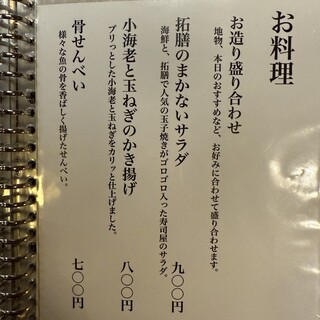 お料理
お造り盛り合わせ
地物、本日のおすすめなど、お好みに合わせて盛り合わせます。
拓膳のまかないサラダ 九〇〇円
海鮮と、拓膳で人気の玉子焼きがゴロゴロ入った寿司屋のサラダ。
小海老と玉ねぎのかき揚げ 八〇〇円
プリっとした小海老と玉ねぎをカリッと仕上げました。
骨せんべい 七〇〇円
様々な魚の骨を香ばしく揚げたせんべい。